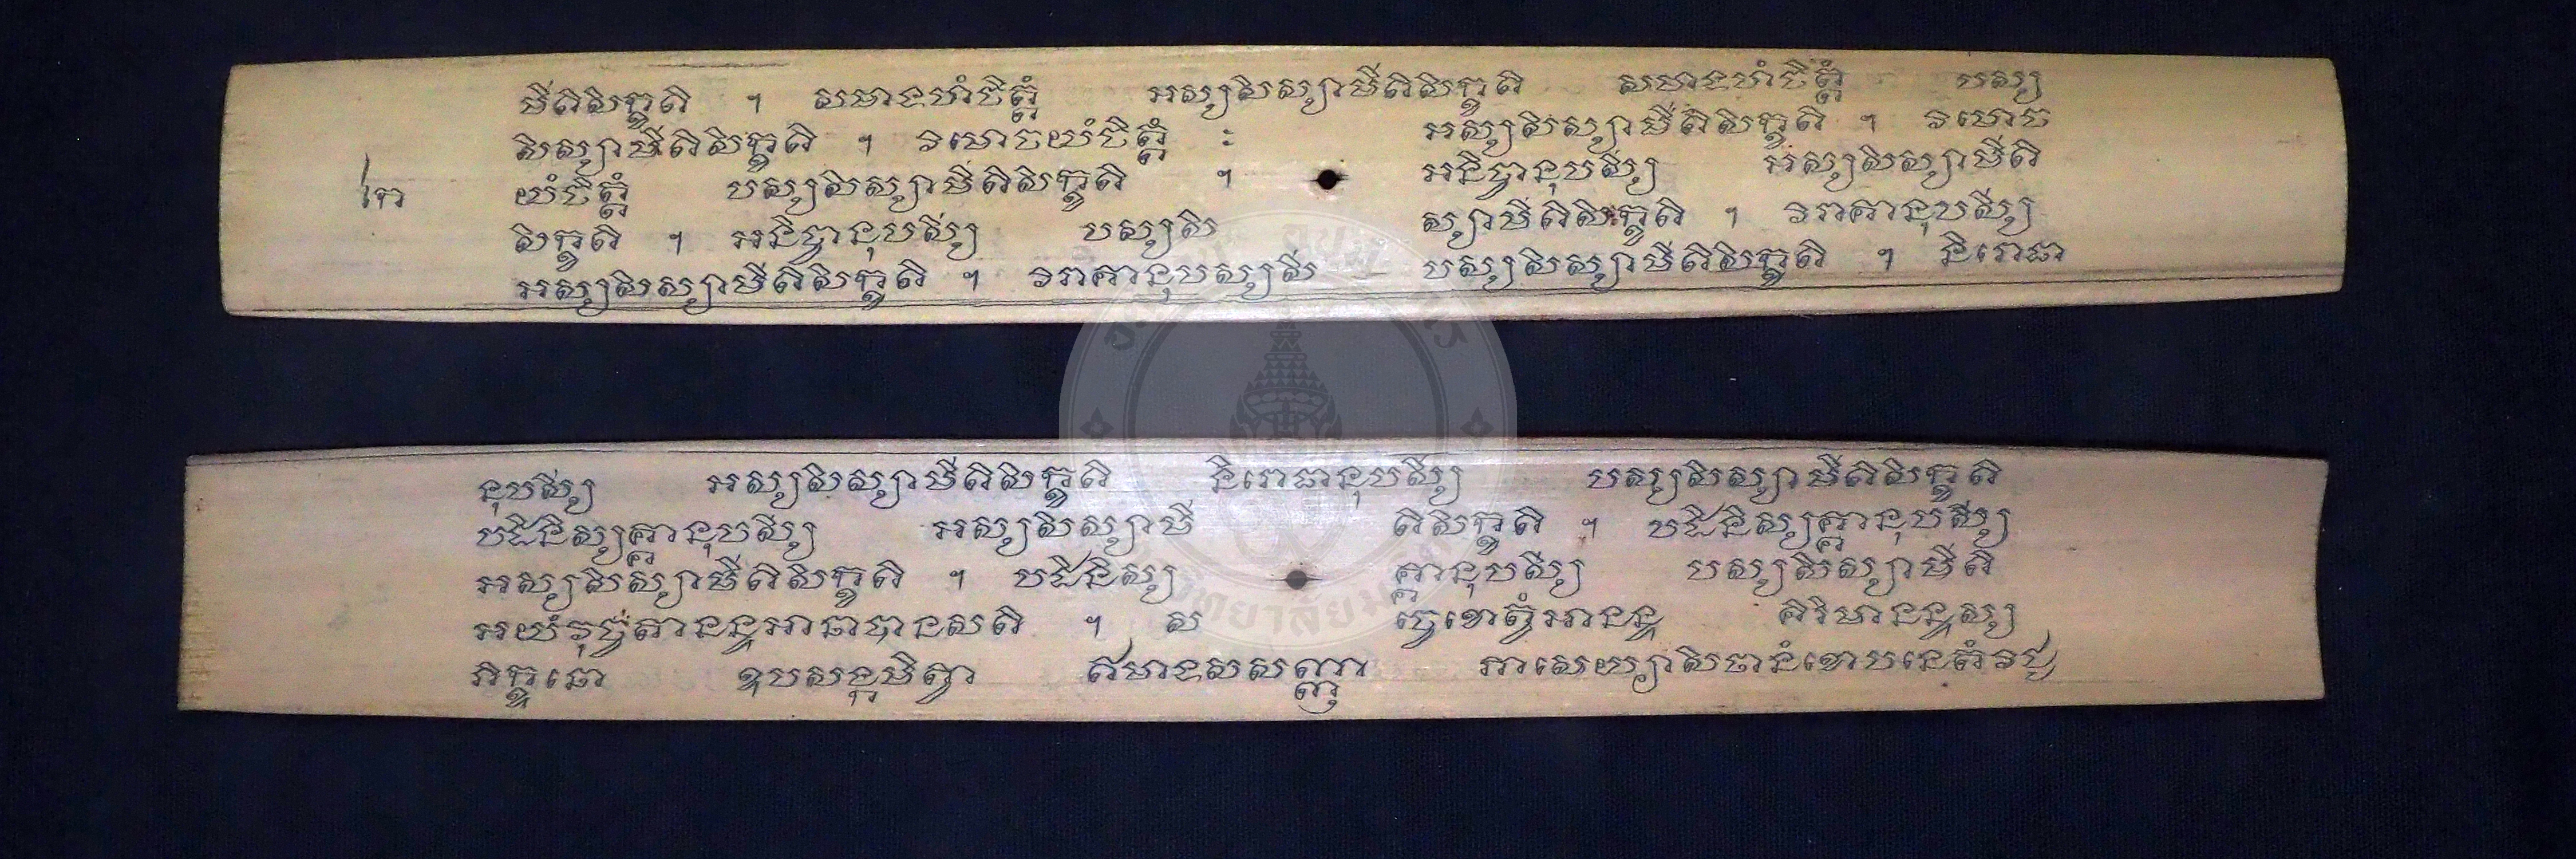 មីតិសិក្ខតិ ។ សមាទហំចិត្តំ អស្សសិស្សាមីតិសិក្ខតិ សមាទហំចិត្តំ បស្ស
សិស្សាមីតិសិក្ខតិ ។ វិមោចយំចិត្តំ ះ អស្សសិស្សាមីតិសិក្ខតិ ។ វិមោច
យំចិត្តំ បស្សសិស្សាមីតិសិក្ខតិ ។ អនិច្ចានុបស្សី អស្សសិស្សាមីតិ
សិក្ខតិ ។ អនិច្ចានុបស្សី បស្សសិ ស្សាមីតិសិក្ខតិ ។ វិរាគានុបស្សី
អស្សសិស្សាមីតិសិក្ខតិ ។ វិរាគានុបស្សសី បស្សសិស្សាមីតិសិក្ខតិ ។ និរោធា
នុបស្សី អស្សសិស្សាមីតិសិក្ខតិ និរោធានុបស្សី បស្សសិស្សាមីតិសិក្ខតិ
បដិនិស្សគ្គានុបស្សី អស្សសិស្សាមី តិសិក្ខតិ ។ បដិនិស្សគ្គានុបស្សី
អស្សសិស្សាមីតិសិក្ខតិ ។ បដិនិស្ស គ្គានុបស្សី បស្សសិស្សាមីតិ
អយំវុច្ចតានន្ទអានាបានសតិ ។ ស ចេខោត្វំអានន្ទ គិរិមានន្ទស្ស
ភិក្ខុនោ ឧបសង្កមិត្វា ឥមាទសសញ្ញា ភាសេយ្យាសិឋានំខោបនេតំវិជ្ជ